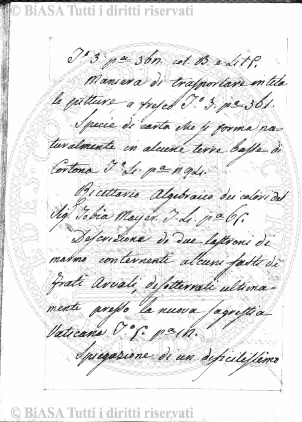 © BiASA Tutti i diritti riservati
Tº 3. pª 361. col. B e Lit C.
Maniera di trasportare in tela
le pitture a fresco Tº 3. pª 361.
Specie di carta che si forma na-
turalmente in alcune terre basse di
Cortona Tº
Ricettario Algebraico dei colori del
Sig. Tobia Mayer. T. pª
Descrizione de due lastroni di
marmo contenente alcuni fasti di
Frati Arvali, disotterrati ultima-
mente presso la nuova sagrestia
Vaticana Tº pª
Spiegazione di un dificilissimo
© BiASA Tutti i diritti riservati